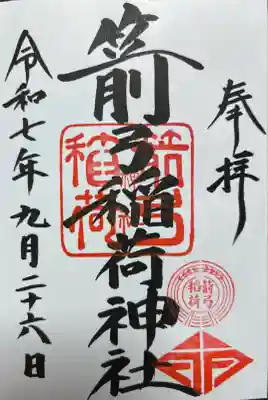 奉拝
箭弓稲荷神社
令和七年九月二十六日
箭弓
稲荷
箭弓
稲荷